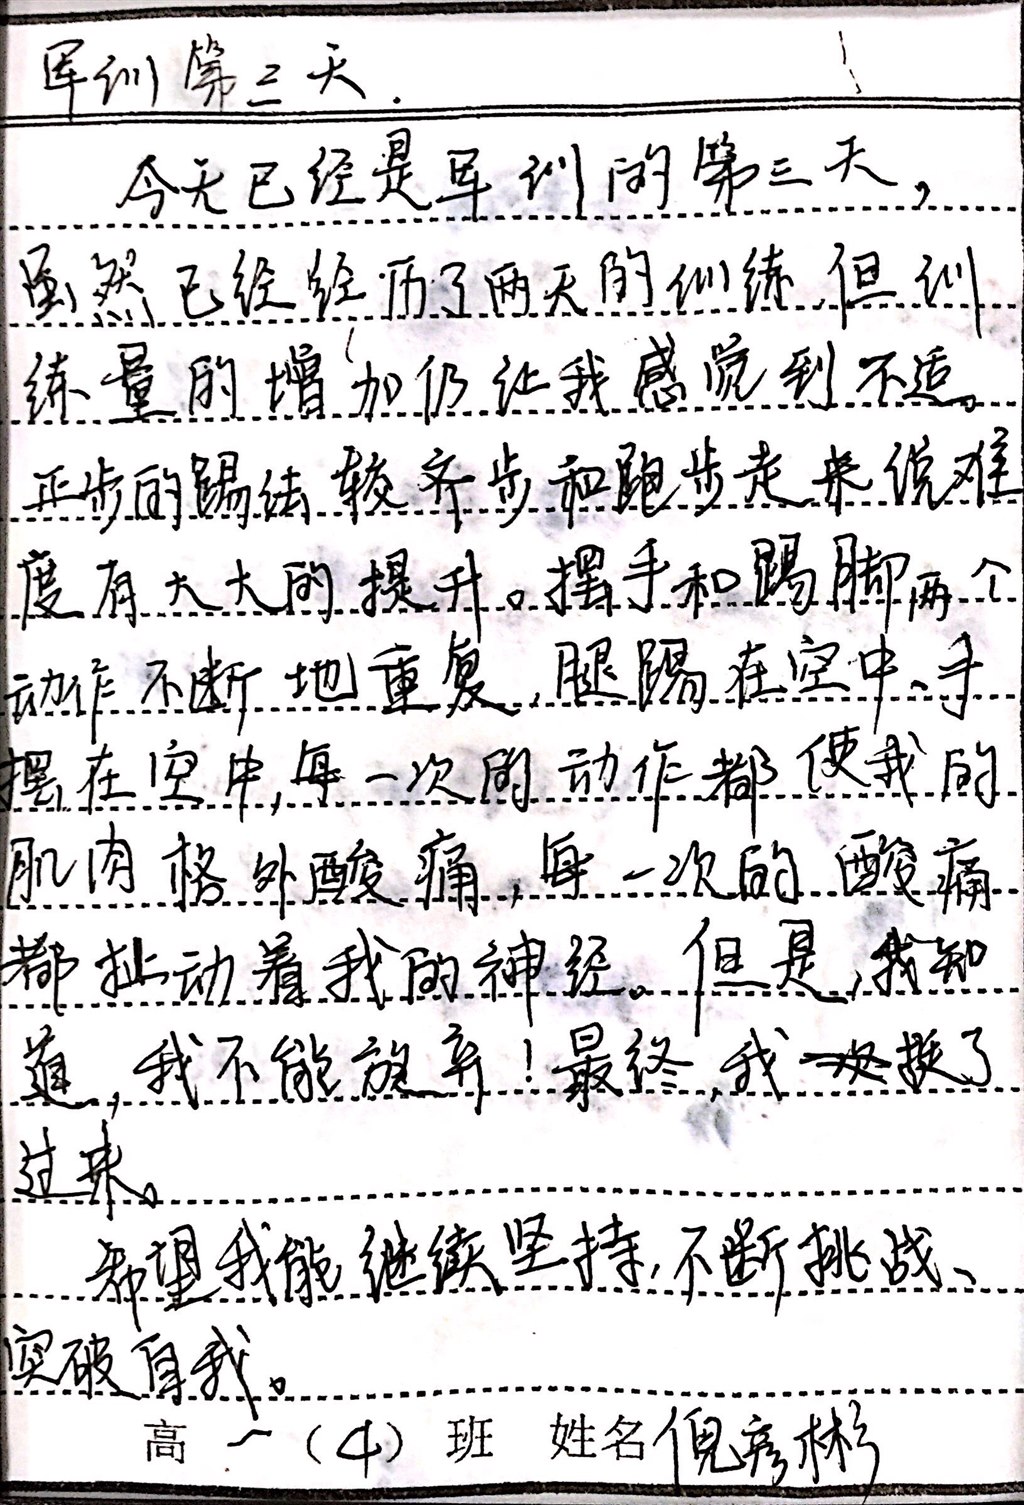 军训第三天.
今天已经是军训的第三天，
虽然已经经历了两天的训练，但训
练量的增加仍让我感觉到不适。
正步的踢法较齐步和跑步走来说难
度有大大的提升。摆手和踢脚两个
动作不断地重复，腿踢在空中、手
摆在空中，每一次的动作都使我的
肌肉格外酸痛，每一次的酸痛
都扯动着我的神经。但是，我知
道，我不能放弃！最终，我挺了
过来。
希望我能继续坚持，不断挑战、
突破自我。
高一（4）班 姓名倪彦彬